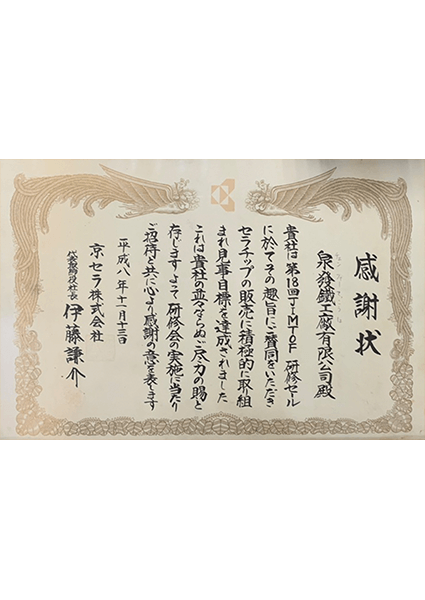 感謝状
泉發鐵工廠有限公司殿
貴社は第18回JIMTOF研修セール
に於てその趣旨にご賛同をいただき
セラチップの販売に積極的に取組
まれ見事目標を達成されました
これは貴社の並々ならぬご尽力の賜と
存じますよって研修会の実施に当たり
ご招待と共に心より感謝の意を表します
平成八年十一月十三日
京セラ株式会社
代表取締役社長 伊藤謙介